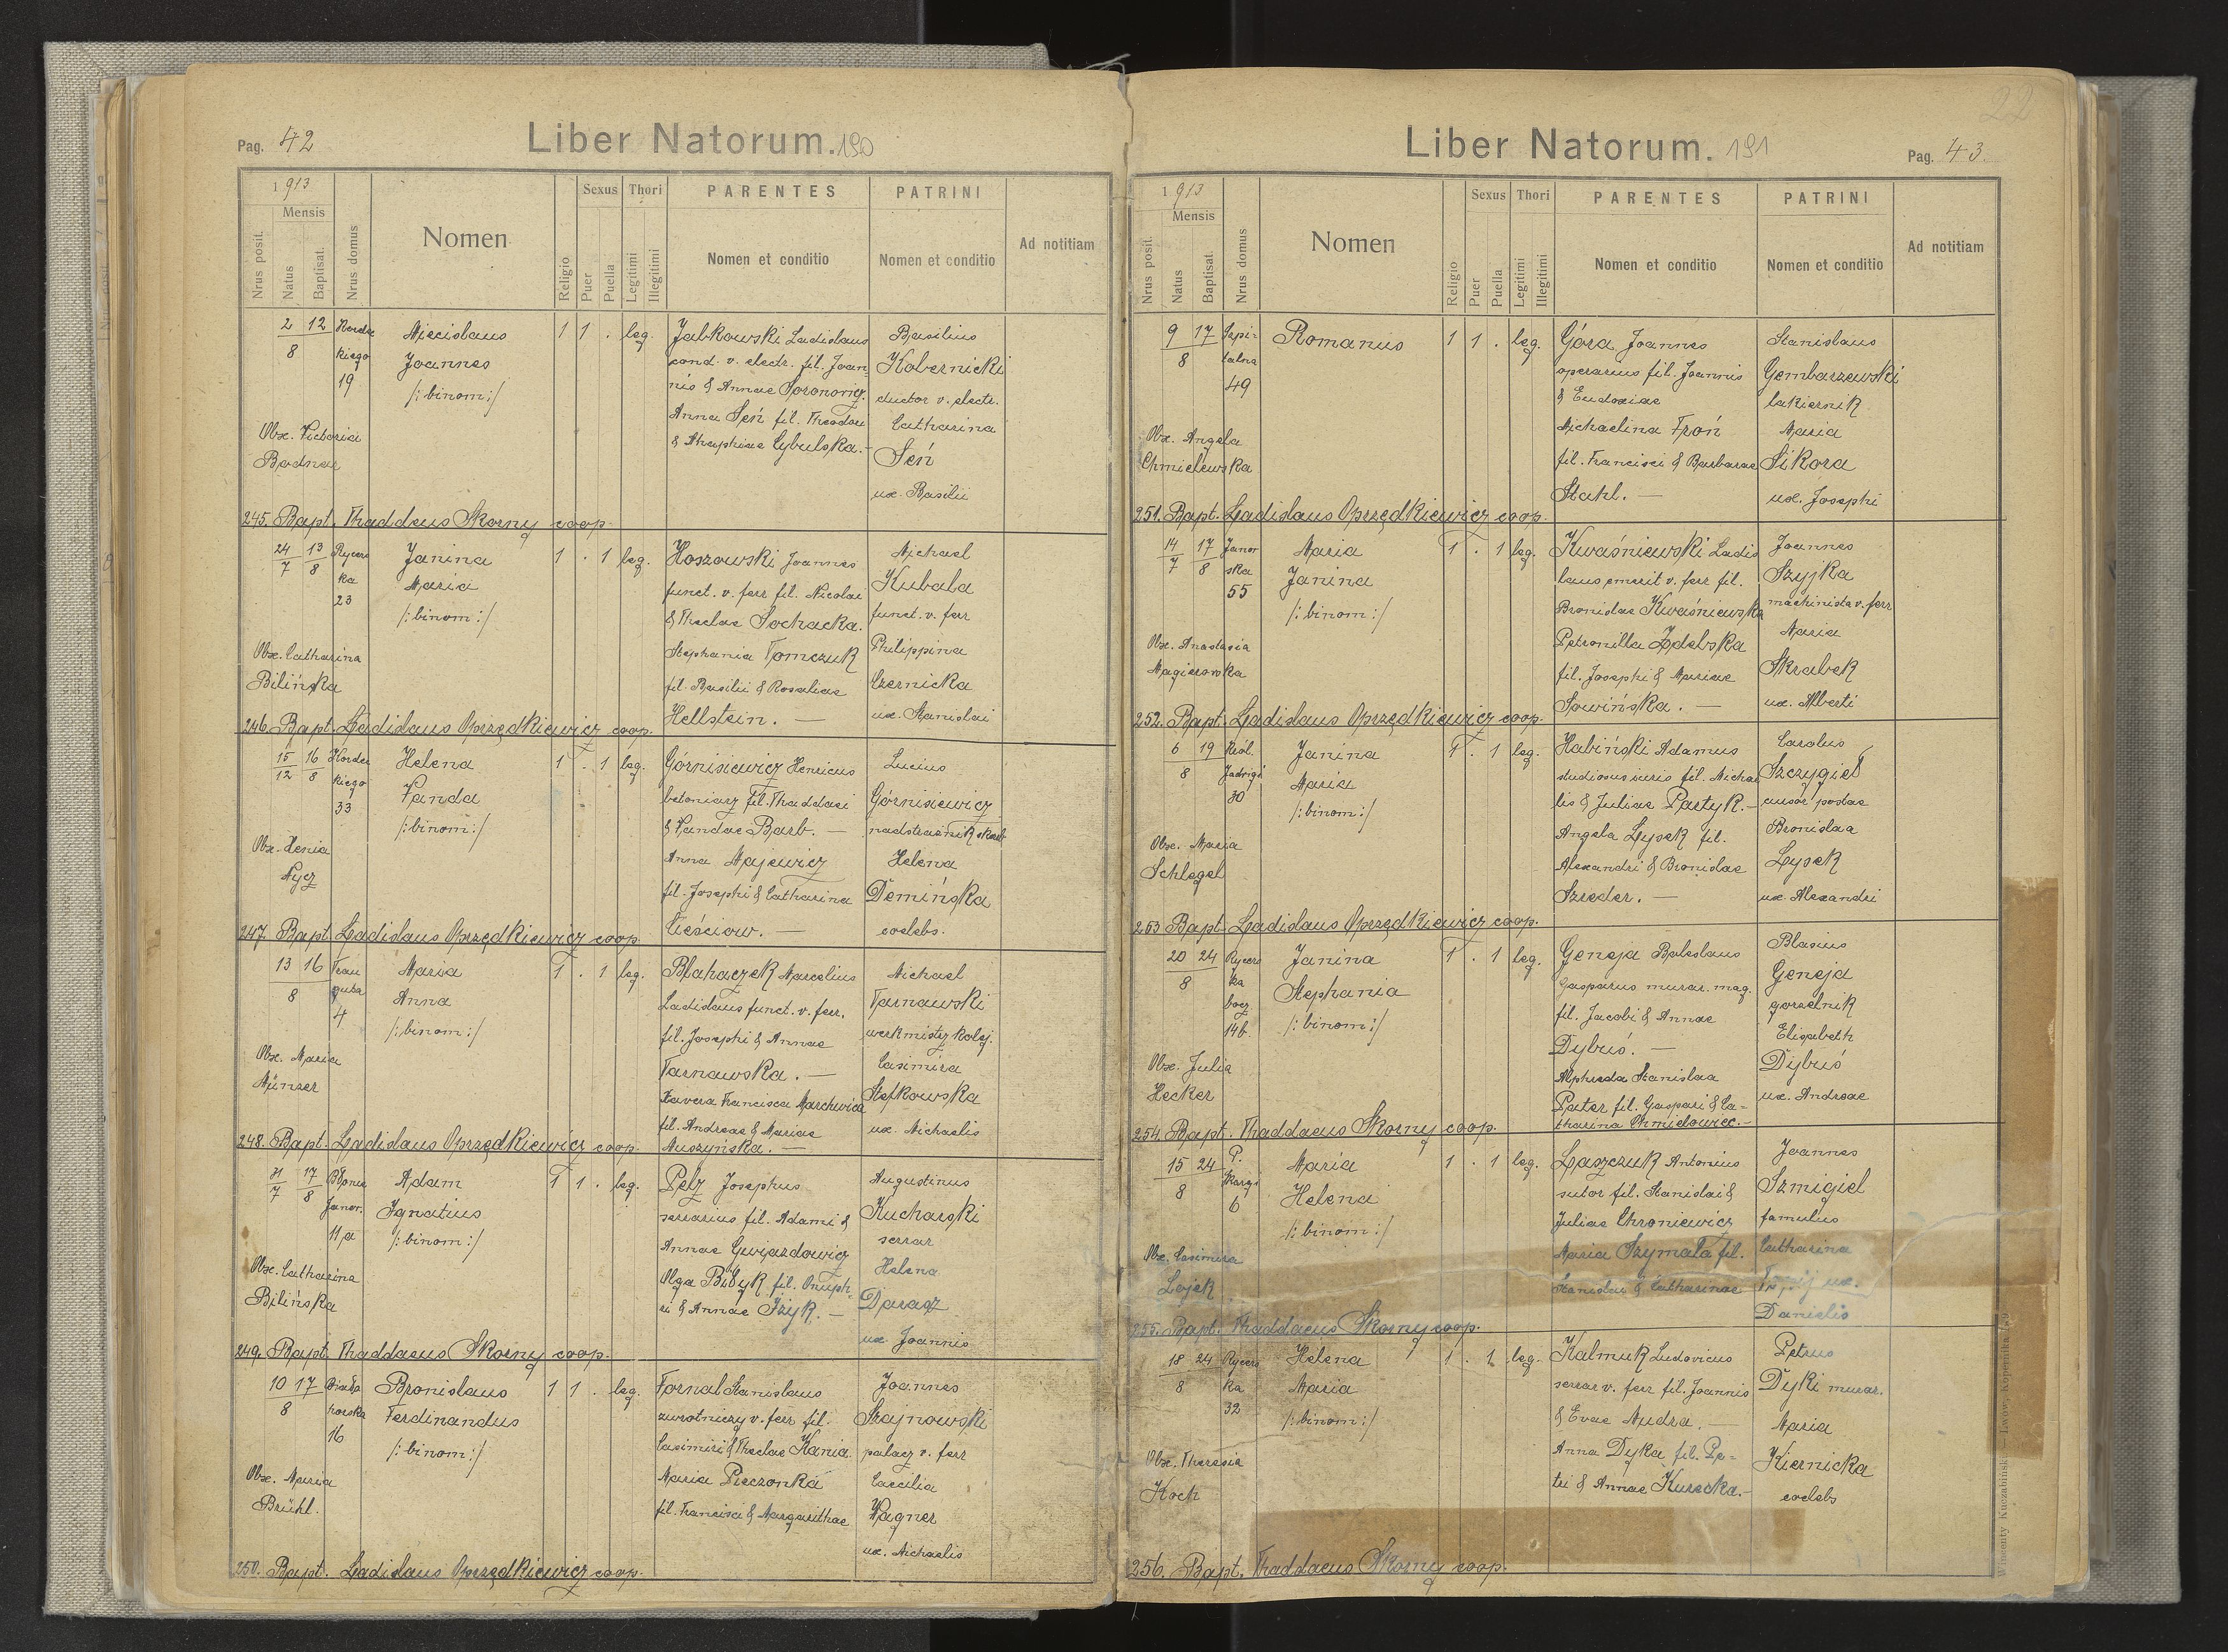 Pag. 42
Liber Natorum. 190
1913
Mensis
Nrus posit.
Natus
Baptisat.
Nrus domus
Nomen
Religio
Sexus
Puer
Puella
Thori
Legitimi
Illegitimi
PARENTES
Nomen et conditio
PATRINI
Nomen et conditio
Ad notitiam
2 12
8
kiego
19
Miecislaus
Joannes
/:binom:/
1 1 . leg.
Obx. Victoria
Bodnar
Jabkowski Ladislaus
cond. v. electr. fil. Joan-
nis & Annae
Anna Seń fil. Theodori
& Cybulska.-
Basilius
Kobernicki
ductor v. electr.
Catharina
Seń
ux. Basilii
245. Bapt. Thaddaeus Skorny coop.
24 13
7 8
Rycers
ka
23
Janina
Maria
/:binom:/
1 . 1 leg.
Obx. Catharina
Bilińska
Hoszowski Joannes
funct. v. ferr fil. Nicolai
& Theclae Sochacka.
Stephania Tomczuk
fil. Basilii & Rosaliae
Hellstein. —
Michael
Kubala
funct. v. ferr
Philippina
Czernicka
ux. Stanislai
246. Bapt. Ladislaus Oprzędkiewicz coop.
15 16
12 8
Kordec
kiego
33
Helena
Vanda
/:binom:/
1 . 1 leg.
Obx. Xenia
Nycz
Górnisiewicz Henricus
betoniarz fil. Thaddaei
& Vandae Barb. —
Anna Majewicz
fil. Josephi & Catharina
Cieściow. —
Lucius
Górnisiewicz
nadstrażnik skarb
Helena
Demińska
coelebs.
247. Bapt. Ladislaus Oprzędkiewicz coop.
13 16
8
4
Maria
Anna
/:binom:/
1 . 1 leg.
Obx. Maria
Münzer
Blahaczek Marcelius
Ladislaus funct. v. ferr.
fil. Josephi & Annae
Tarnawska. —
Xavera Francisca Marchwica
fil. Andreae & Mariae
Muszyńska. —
Michael
Tarnawski
werkmistrz kolej.
Casimira
Stefkowska
ux. Michaelis
248. Bapt. Ladislaus Oprzędkiewicz coop.
31 17
7 8
Błonie
Janor.
11a
Adam
Ignatius
/:binom:/
1 1 . leg.
Obx. Catharina
Bilińska
Pelz Josephus
serrarius fil. Adami &
Annae Gwiazdowicz
Olga Bibyk fil. Onuph-
ri & Annae Izyk. —
Augustinus
Kucharski
serrar
Helena
Daracz
ux. Joannis
249. Bapt. Thaddaeus Skorny coop.
10 17
8
16
Bronislaus
Ferdinandus
/:binom:/
1 1 . leg.
Obx. Maria
Brühl.
Fornal Stanislaus
zwrotniczy v. ferr fil.
Casimiri & Theclae Kania.
Maria Pieczonka
fil. Francisci & Margarithae
Joannes
Szajnowski
palacz v. ferr
Caecilia
Wagner
ux. Michaelis
250. Bapt. Ladislaus Oprzędkiewicz coop.
22
Liber Natorum. 191
Pag. 43.
1913
Mensis
Nrus posit.
Natus
Baptisat.
Nrus domus
Nomen
Religio
Sexus
Puer
Puella
Thori
Legitimi
Illegitimi
PARENTES
Nomen et conditio
PATRINI
Nomen et conditio
Ad notitiam
9 17
8
Szpi-
talna
49
Romanus
1 1 . leg.
Obx. Angela
Chmielewska
Góra Joannes
operarius fil. Joannis
& Eudoxiae
Michaelina Froń
fil. Francisci & Barbarae
Stahl. —
Stanislaus
Gembarzewski
lakiernik
Maria
Sikora
ux. Josephi
251. Bapt. Ladislaus Oprzędkiewicz coop.
14 17
7 8
Janow
ska
55
Maria
Janina
/:binom:/
1 . 1 leg.
Obx. Anastasia
Magierowska
Kwaśniewski Ladis
laus emerit v. ferr fil.
Bronislae Kwaśniewska
Petronilla Zdebska
fil. Josephi & Mariae
Sowińska. —
Joannes
Szyjka
machinista v. ferr
Maria
Skrabek
ux. Alberti
252. Bapt. Ladislaus Oprzędkiewicz coop.
6 19
8
Król.
Jadwigi
30
Janina
Maria
/:binom:/
1 . 1 leg.
Obx. Maria
Schlegel
Habiński Adamus
studiosus iuris fil. Michae
lis & Juliae Partyk.—
Angela Lysek fil.
Alexandri & Bronislae
Szreder. —
Carolus
Szczygieł
cursor postae
Bronislaa
Lysek
ux. Alexandri
253 Bapt. Ladislaus Oprzędkiewicz coop.
20 24
8
Rycers
ka
bocz
14b.
Janina
Stephania
/:binom:/
1 . 1 leg.
Obx. Julia
Hecker
Geneja Boleslaus
Gasparus murar. mag.
fil. Jacobi & Annae
Dybuś. —
Alphreda Stanislaa
Pater fil. Gaspari & Ca-
tharina Chmielowiec.—
Blasius
Geneja
gorzelnik
Elisabeth
Dybuś
ux. Andreae
254. Bapt. Thaddaeus Skorny coop.
15 24
8
P.
Skargi
6
Maria
Helena
/:binom:/
1 . 1 leg.
Obx. Casimira
Lejek
Laszczuk Antonius
sutor fil. Stanislai &
Juliae Chroniewicz
Maria Szymala fil.
Stanislai & Catharinae
Joannes
Szmigiel
famulus
Catharina
ux.
Danielis
255. Bapt. Thaddaeus Skorny coop.
18 24
8
Rycers
ka
32
Helena
Maria
/:binom:/
1 . 1 leg.
Obx. Theresia
Koch
Kalmuk Ludovicus
serrar v. ferr fil. Joannis
& Evae Mudra. —
Anna Dyka fil. Pe-
tri & Annae Kurecka.—
Petrus
Dyki murar.
Maria
Kiernicka
coelebs
256. Bapt. Thaddaeus Skorny coop.
Wincenty Kuczabiński — Lwów, Kopernika